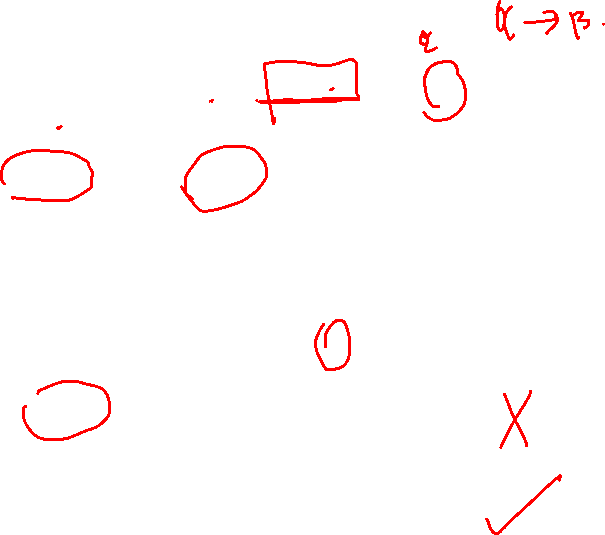 α → β.
α
X
✓